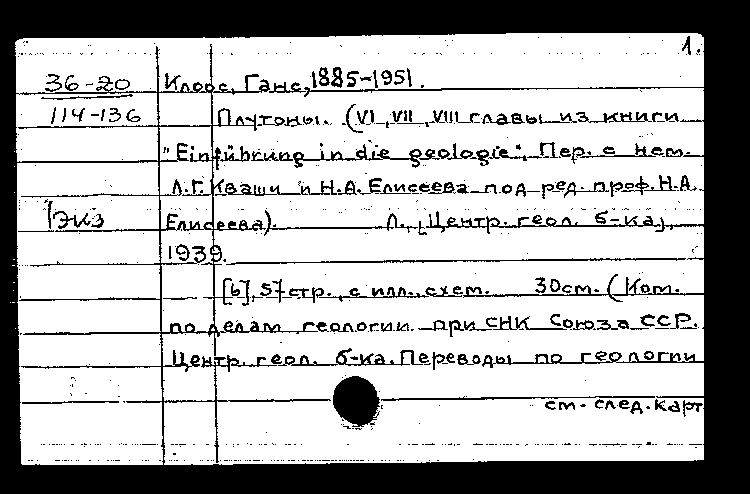 1.
36-20 Клоос, Ганс, 1885-1951.
114-136 Плутоны. (VI, VII, VIII главы из книги
"Einführung in die geologie", Пер. с нем.
Л.Г. Кваши и Н.А. Елисеева под ред. проф. Н.А.
1экз Елисеева). Л., [Центр. геол. б-ка],
1939.
[6], 57 стр., с илл., схем. 30см. (Ком.
по делам геологии при СНК Союза ССР.
Центр. геол. б-ка. Переводы по геологии
см. след. карт